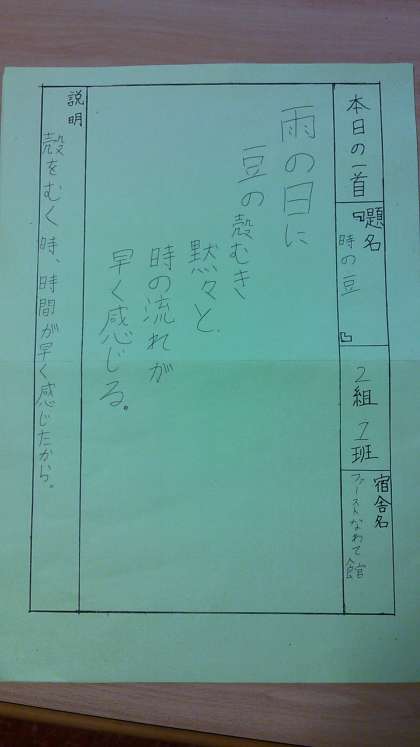 本日の一首
題名
『時の豆』
2組 1班
宿舎名
ファーストなわて館
雨の日に
豆の殻むき
黙々と、
時の流れが
早く感じる。
説明
殻をむく時、時間が早く感じたから。